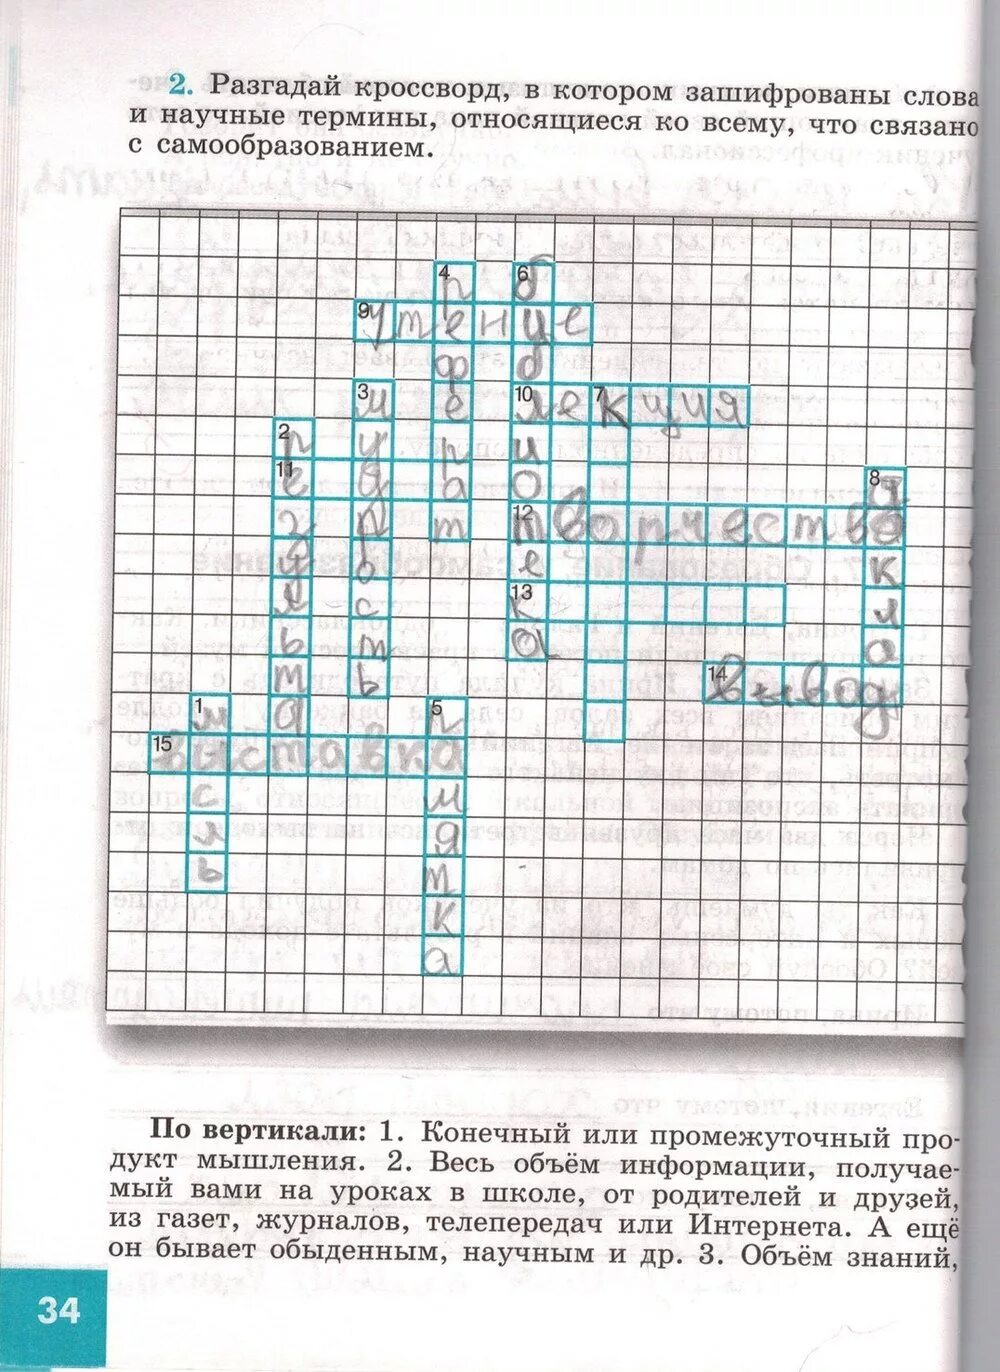 2. Разгадай кроссворд, в котором зашифрованы слова
и научные термины, относящиеся ко всему, что связано
с самообразованием.
4 р 6 б
9 Чтение
ф б
3 м е 10 лекция 7
2 р у р и
11 е д а о 8 д
з р т 12 творчество
у о е к
л с 13 к л
ь т а а
т ь 14 вывод
1 м а 5 п
15 выставка
с м
л я
ь т
к
а
По вертикали: 1. Конечный или промежуточный про-
дукт мышления. 2. Весь объём информации, получае-
мый вами на уроках в школе, от родителей и друзей,
из газет, журналов, телепередач или Интернета. А ещё
он бывает обыденным, научным и др. 3. Объём знаний,
34